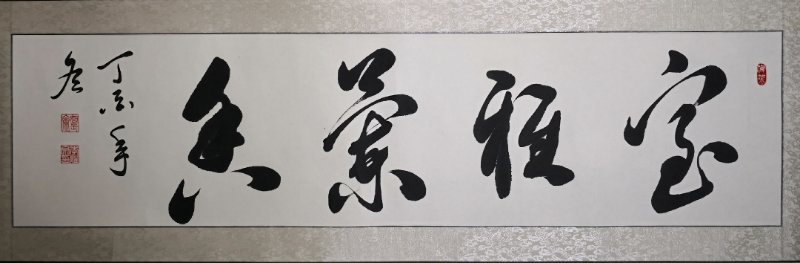 室雅兰香
丁酉年
冬